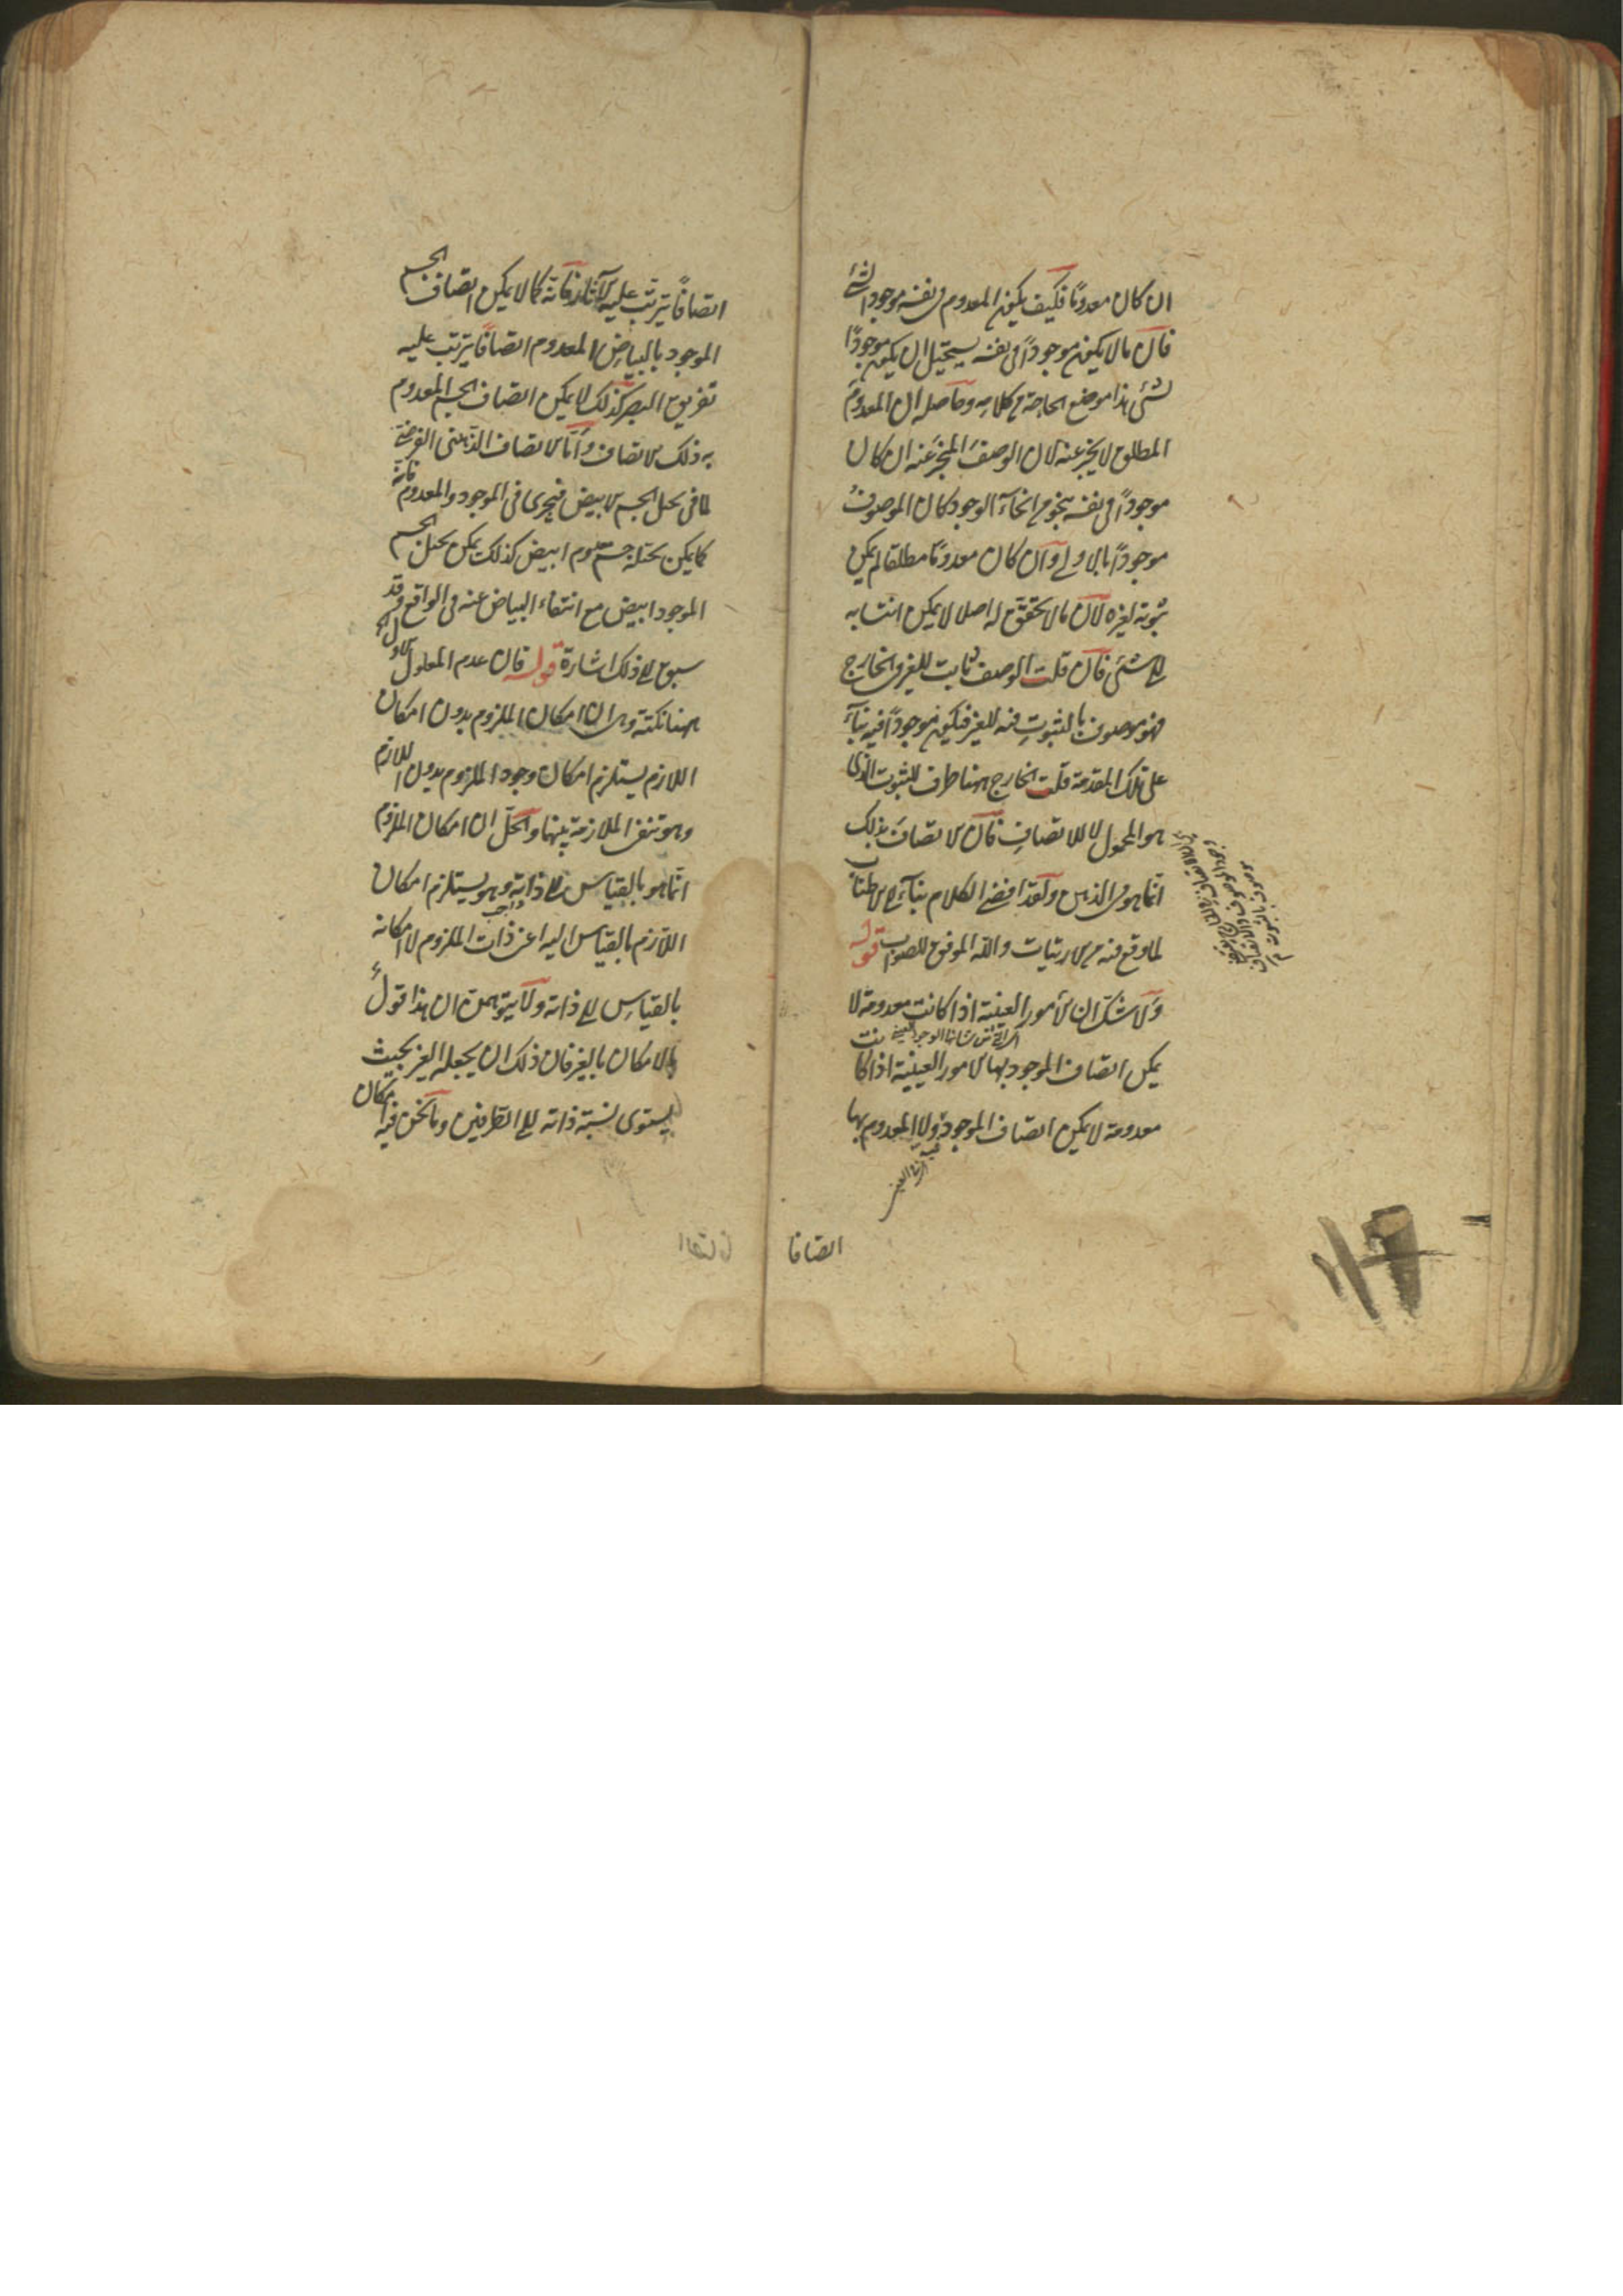 ان كان معدومًا فكيف يكون المعدوم فى نفسه موجودا لشئ
فان ما لا يكون موجودًا فى نفسه يستحيل ان يكون موجودًا
لشئ هذا موضع الحاجة من كلامه وحاصله ان المعدوم
المطلق لا يخبر عنه لان الوصف المخبر عنه ان كان
موجودًا فى نفسه بنحو من انحآء الوجود كان الموصوف
موجودًا بالاولى وان كان معدومًا مطلقا لم يكن
ثبوته لغيره لان ما لا تحقق له اصلا لا يمكن انتسابه
الى شئ فان قلت الوصف ثابت للغير فى الخارج
فهو موصوف بالثبوت فيه للغير فيكون موجودًا فيه بنآء
على تلك المقدمة قلت الخارج ههنا ظرف للثبوت الذى
هو المحمول لا للاتصاف فان الاتصاف بذلك
انما هو فى الذهن ولقد افضى الكلام بنآء الى الاطناب
لما وقع فيه من الارتياب والله الموفق للصواب قوله
ولا شك ان الأمور العينية اذا كانت معدومة لا
اى التى من شانها الوجود العينى
يمكن اتصاف الموجود بها الامور العينية اذا كانت
معدومة لا يمكن اتصاف الموجود ولا المعدوم بها
اتصافا
اتصافًا يترتب عليه الآثار فانه كما لا يمكن اتصاف الجسم
الموجود بالبياض المعدوم اتصافًا يترتب عليه
تفريق البصر كذلك لا يمكن اتصاف الجسم المعدوم
به ذلك الاتصاف وأما الاتصاف الذهنى الفرضى
كما فى تخيل الجسم الابيض فيجرى فى الموجود والمعدوم فانه
كما يمكن تخيل جسم معدوم ابيض كذلك يمكن تخيل الجسم
الموجود ابيض مع انتفاء البياض عنه فى الواقع وقد
سبق الى ذلك اشارة قوله فان عدم المعلول الاول
ههنا نكتة وهى ان امكان الملزوم بدون امكان
اللازم يستلزم امكان وجود الملزوم بدون اللازم
وهو تنفى الملازمة بينهما والحل ان امكان الملزوم
انما هو بالقياس الى ذاته وهو يستلزم امكان
اللازم بالقياس اليه اعنى ذات الملزوم لا امكانه
بالقياس الى ذاته ولا يتوهمن ان هذا قول
بالامكان بالغير فان ذلك ان يجعله الغير بحيث
يستوى نسبة ذاته الى الطرفين وما نحن فيه امكان